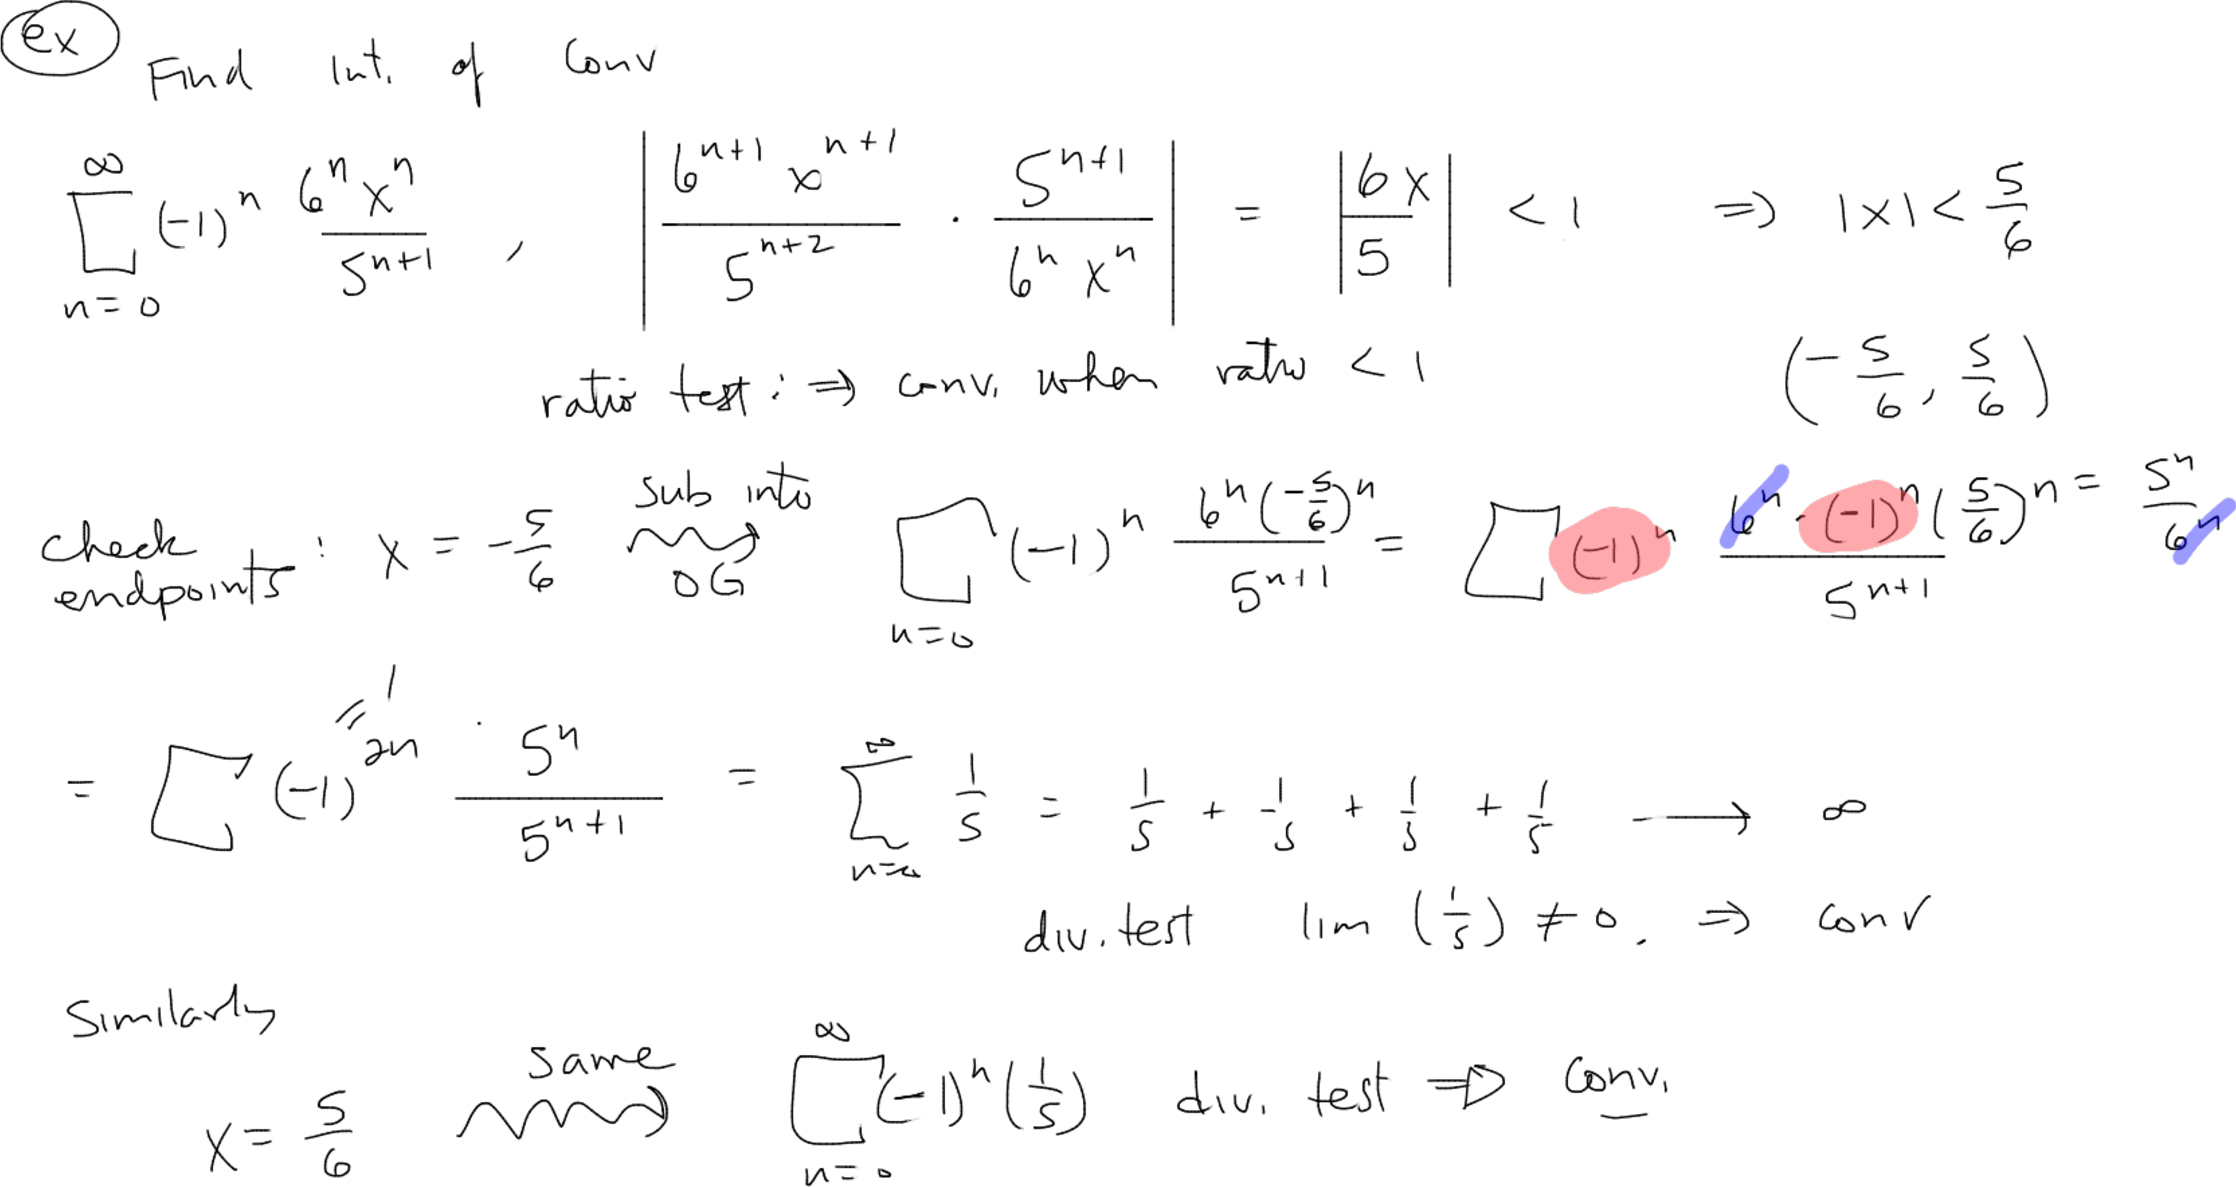 ex Find Int. of Conv
∞ ∑ n=0 (-1)^n 6^n x^n / 5^{n+1} , | 6^{n+1} x^{n+1} / 5^{n+2} · 5^{n+1} / 6^n x^n | = | 6x / 5 | < 1 ⇒ |x| < 5/6
ratio test : ⇒ conv. when ratio < 1 (-5/6, 5/6)
check endpoints : x = -5/6 sub into OG ∑ n=0 (-1)^n 6^n (-5/6)^n / 5^{n+1} = ∑ (-1)^n 6^n · (-1)^n (5/6)^n / 5^{n+1} = 5^n / 6^n
= ∑ (-1)^{2n} = 1 · 5^n / 5^{n+1} = ∞ ∑ n=0 1/5 = 1/5 + 1/5 + 1/5 + 1/5 → ∞
div. test lim (1/5) ≠ 0. ⇒ conv
Similarly
x = 5/6 same ∞ ∑ n=0 (-1)^n (1/5) div. test ⇒ conv.